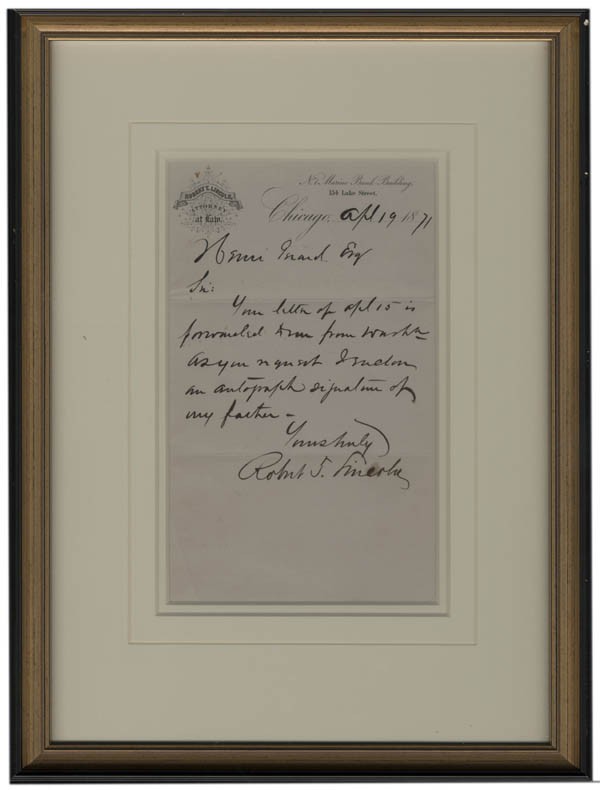 ROBERT T. LINCOLN,
ATTORNEY
at Law.
No. 1 Marine Bank Building,
154 Lake Street.
Chicago, Apl 19 1871
Henri Esq
Sir:
Your letter of Apl 15 is
forwarded from Washn
As you request I enclose
an autograph signature of
my father -
Yours truly
Robert T. Lincoln